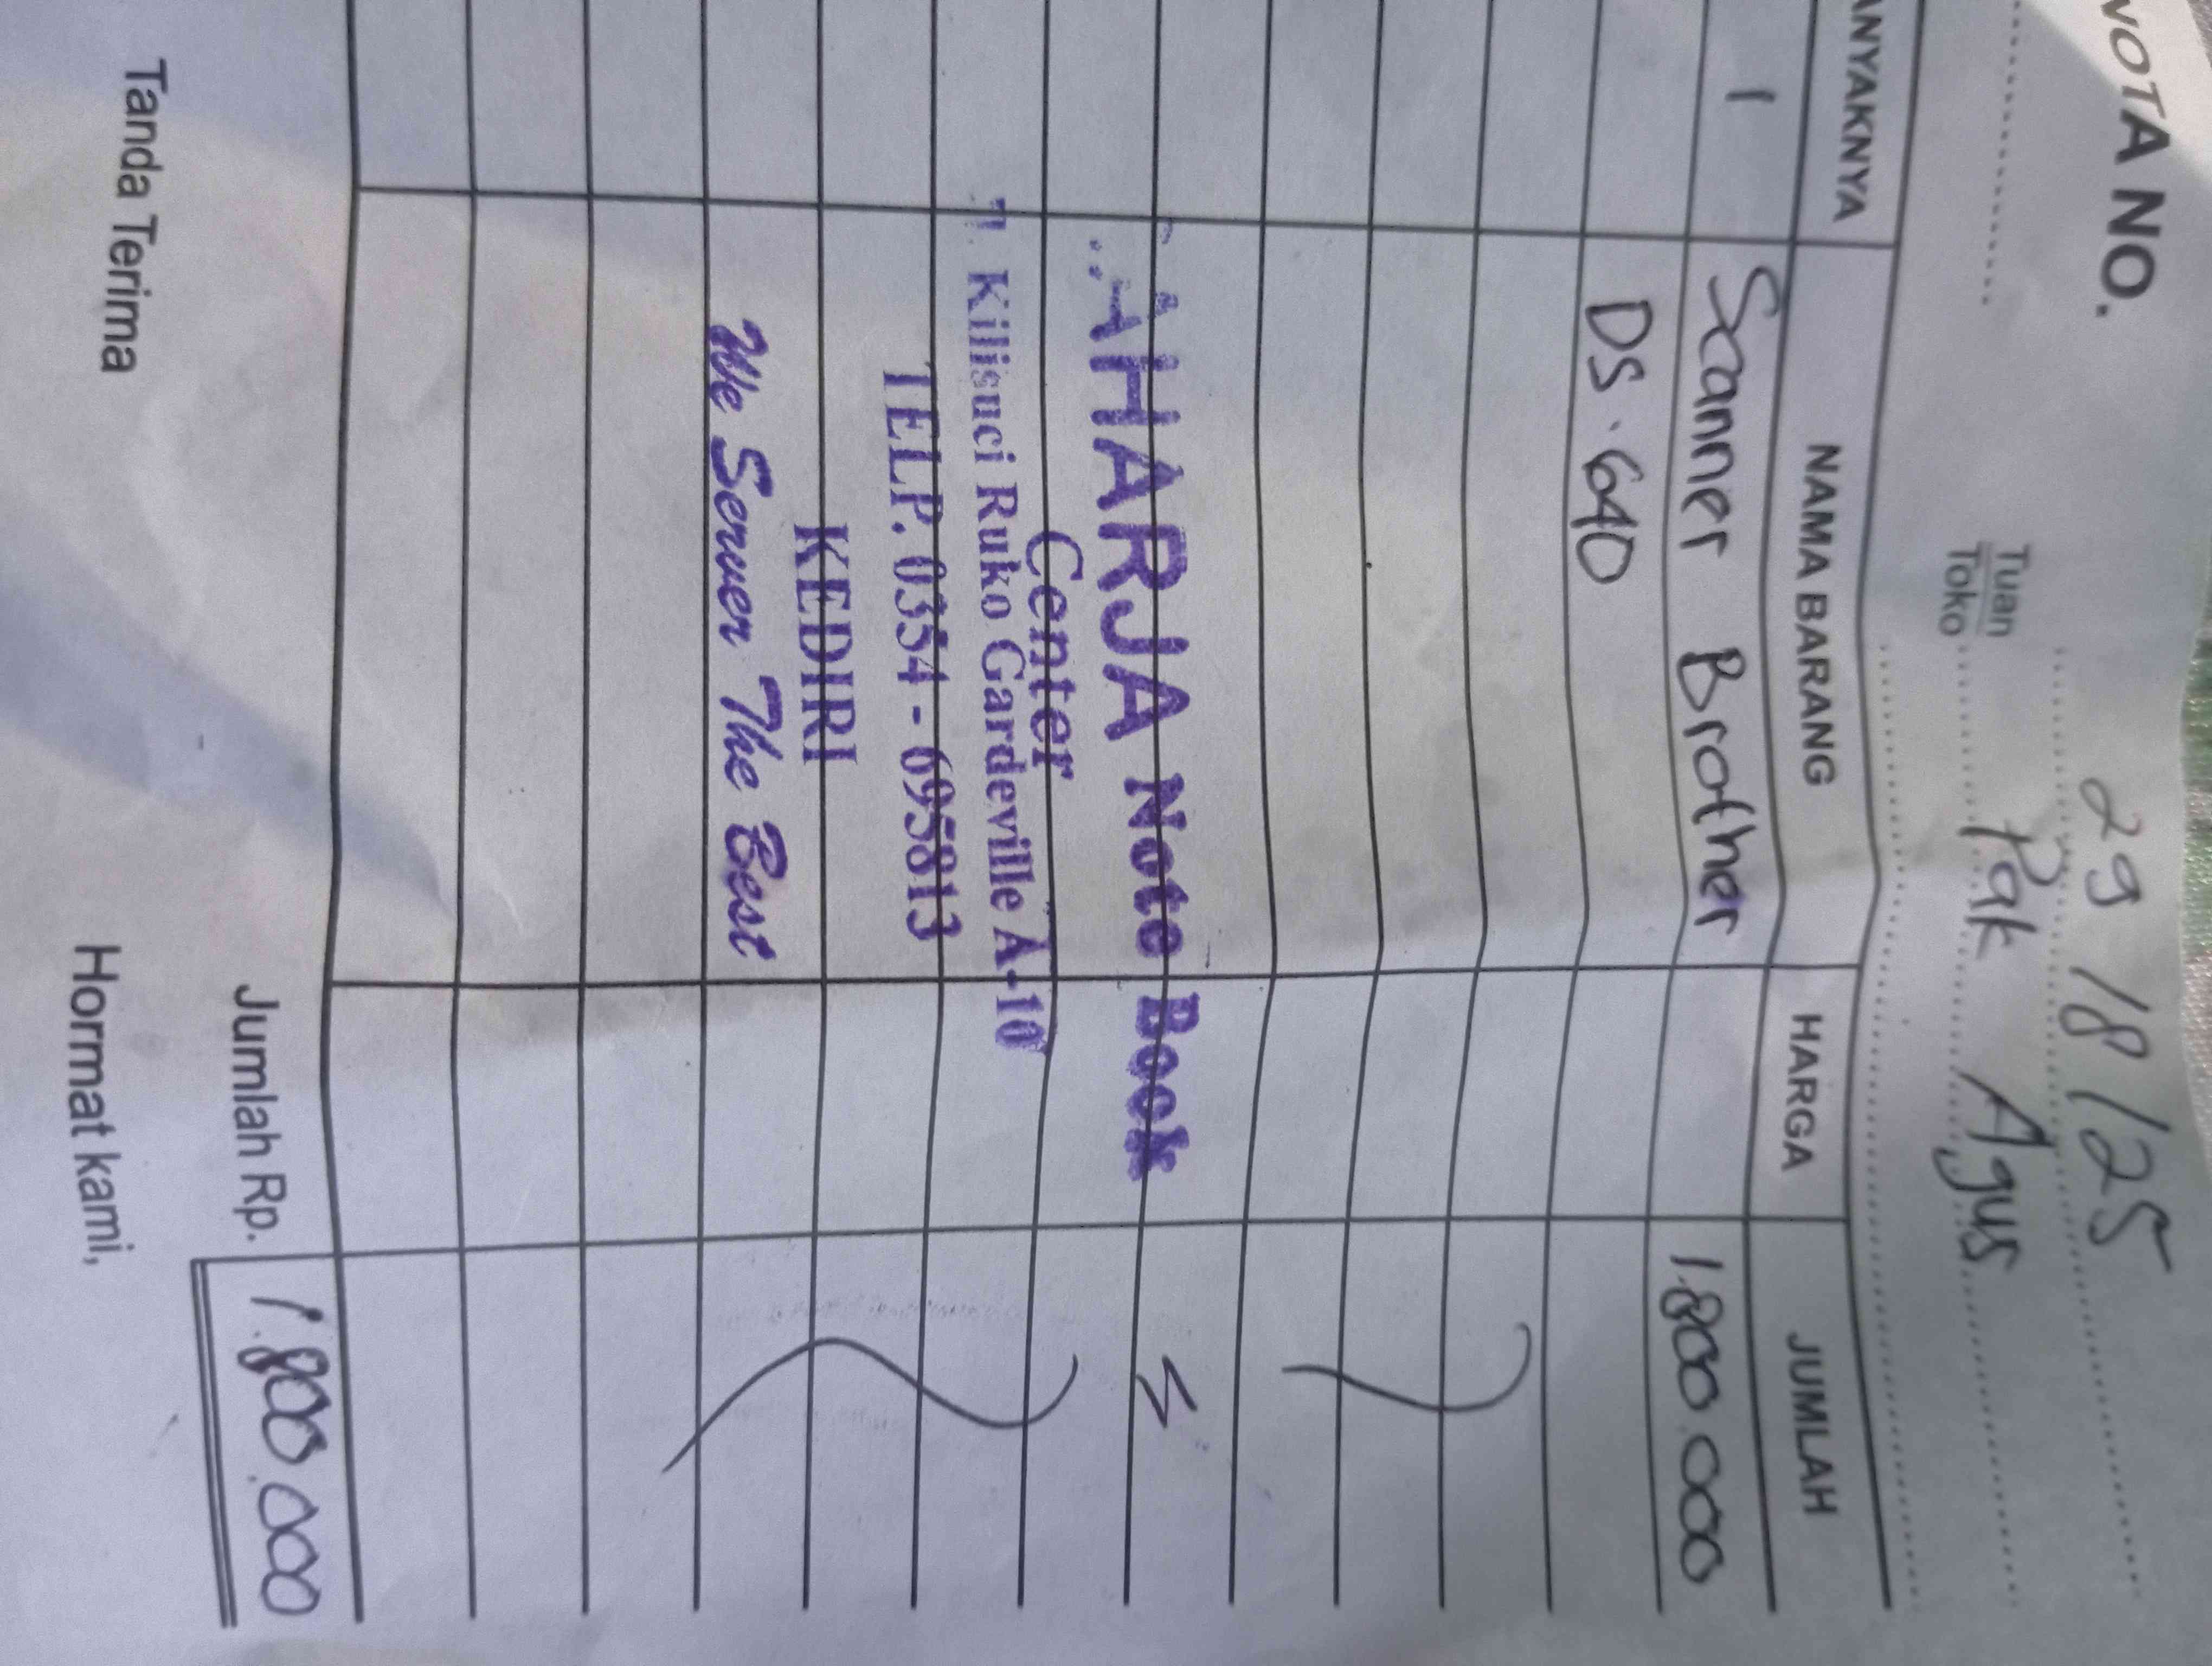 NOTA NO.
29/8/25
Tuan
Toko
Pak Agus
ANYAKNYA NAMA BARANG HARGA JUMLAH
1 Scanner Brother 1.800.000
DS.640
AHARJA Note Book
Center
Jl. Kilisuci Ruko Gardeville A-10
TELP. 0354 - 695813
KEDIRI
We Server The Best
Jumlah Rp. 1.800.000
Tanda Terima Hormat kami,